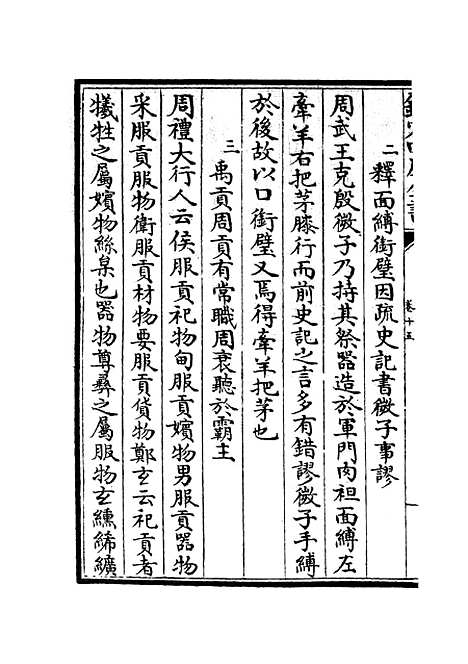 卷十五
二 釋面縛銜璧因疏史記書微子事謬
周武王克殷微子乃持其祭器造於軍門肉袒面縛左
牽羊右把茅膝行而前史記之言多有錯謬微子手縛
於後故以口銜璧又焉得牽羊把茅也
三 禹貢周貢有常職周衰聽於霸主
周禮大行人云侯服貢祀物甸服貢嬪物男服貢器物
采服貢服物衛服貢材物要服貢貨物鄭玄云祀貢者
犧牲之屬嬪物絲枲也器物尊彝之屬服物玄纁絺纊